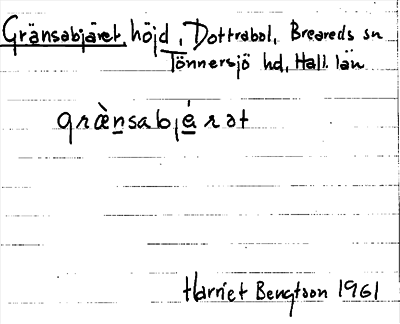 Gränsabjäret, höjd, Dottrabol, Breareds sn
Tönnersjö hd, Hall. län
græ̀nsabjérət
Harriet Bengtson 1961